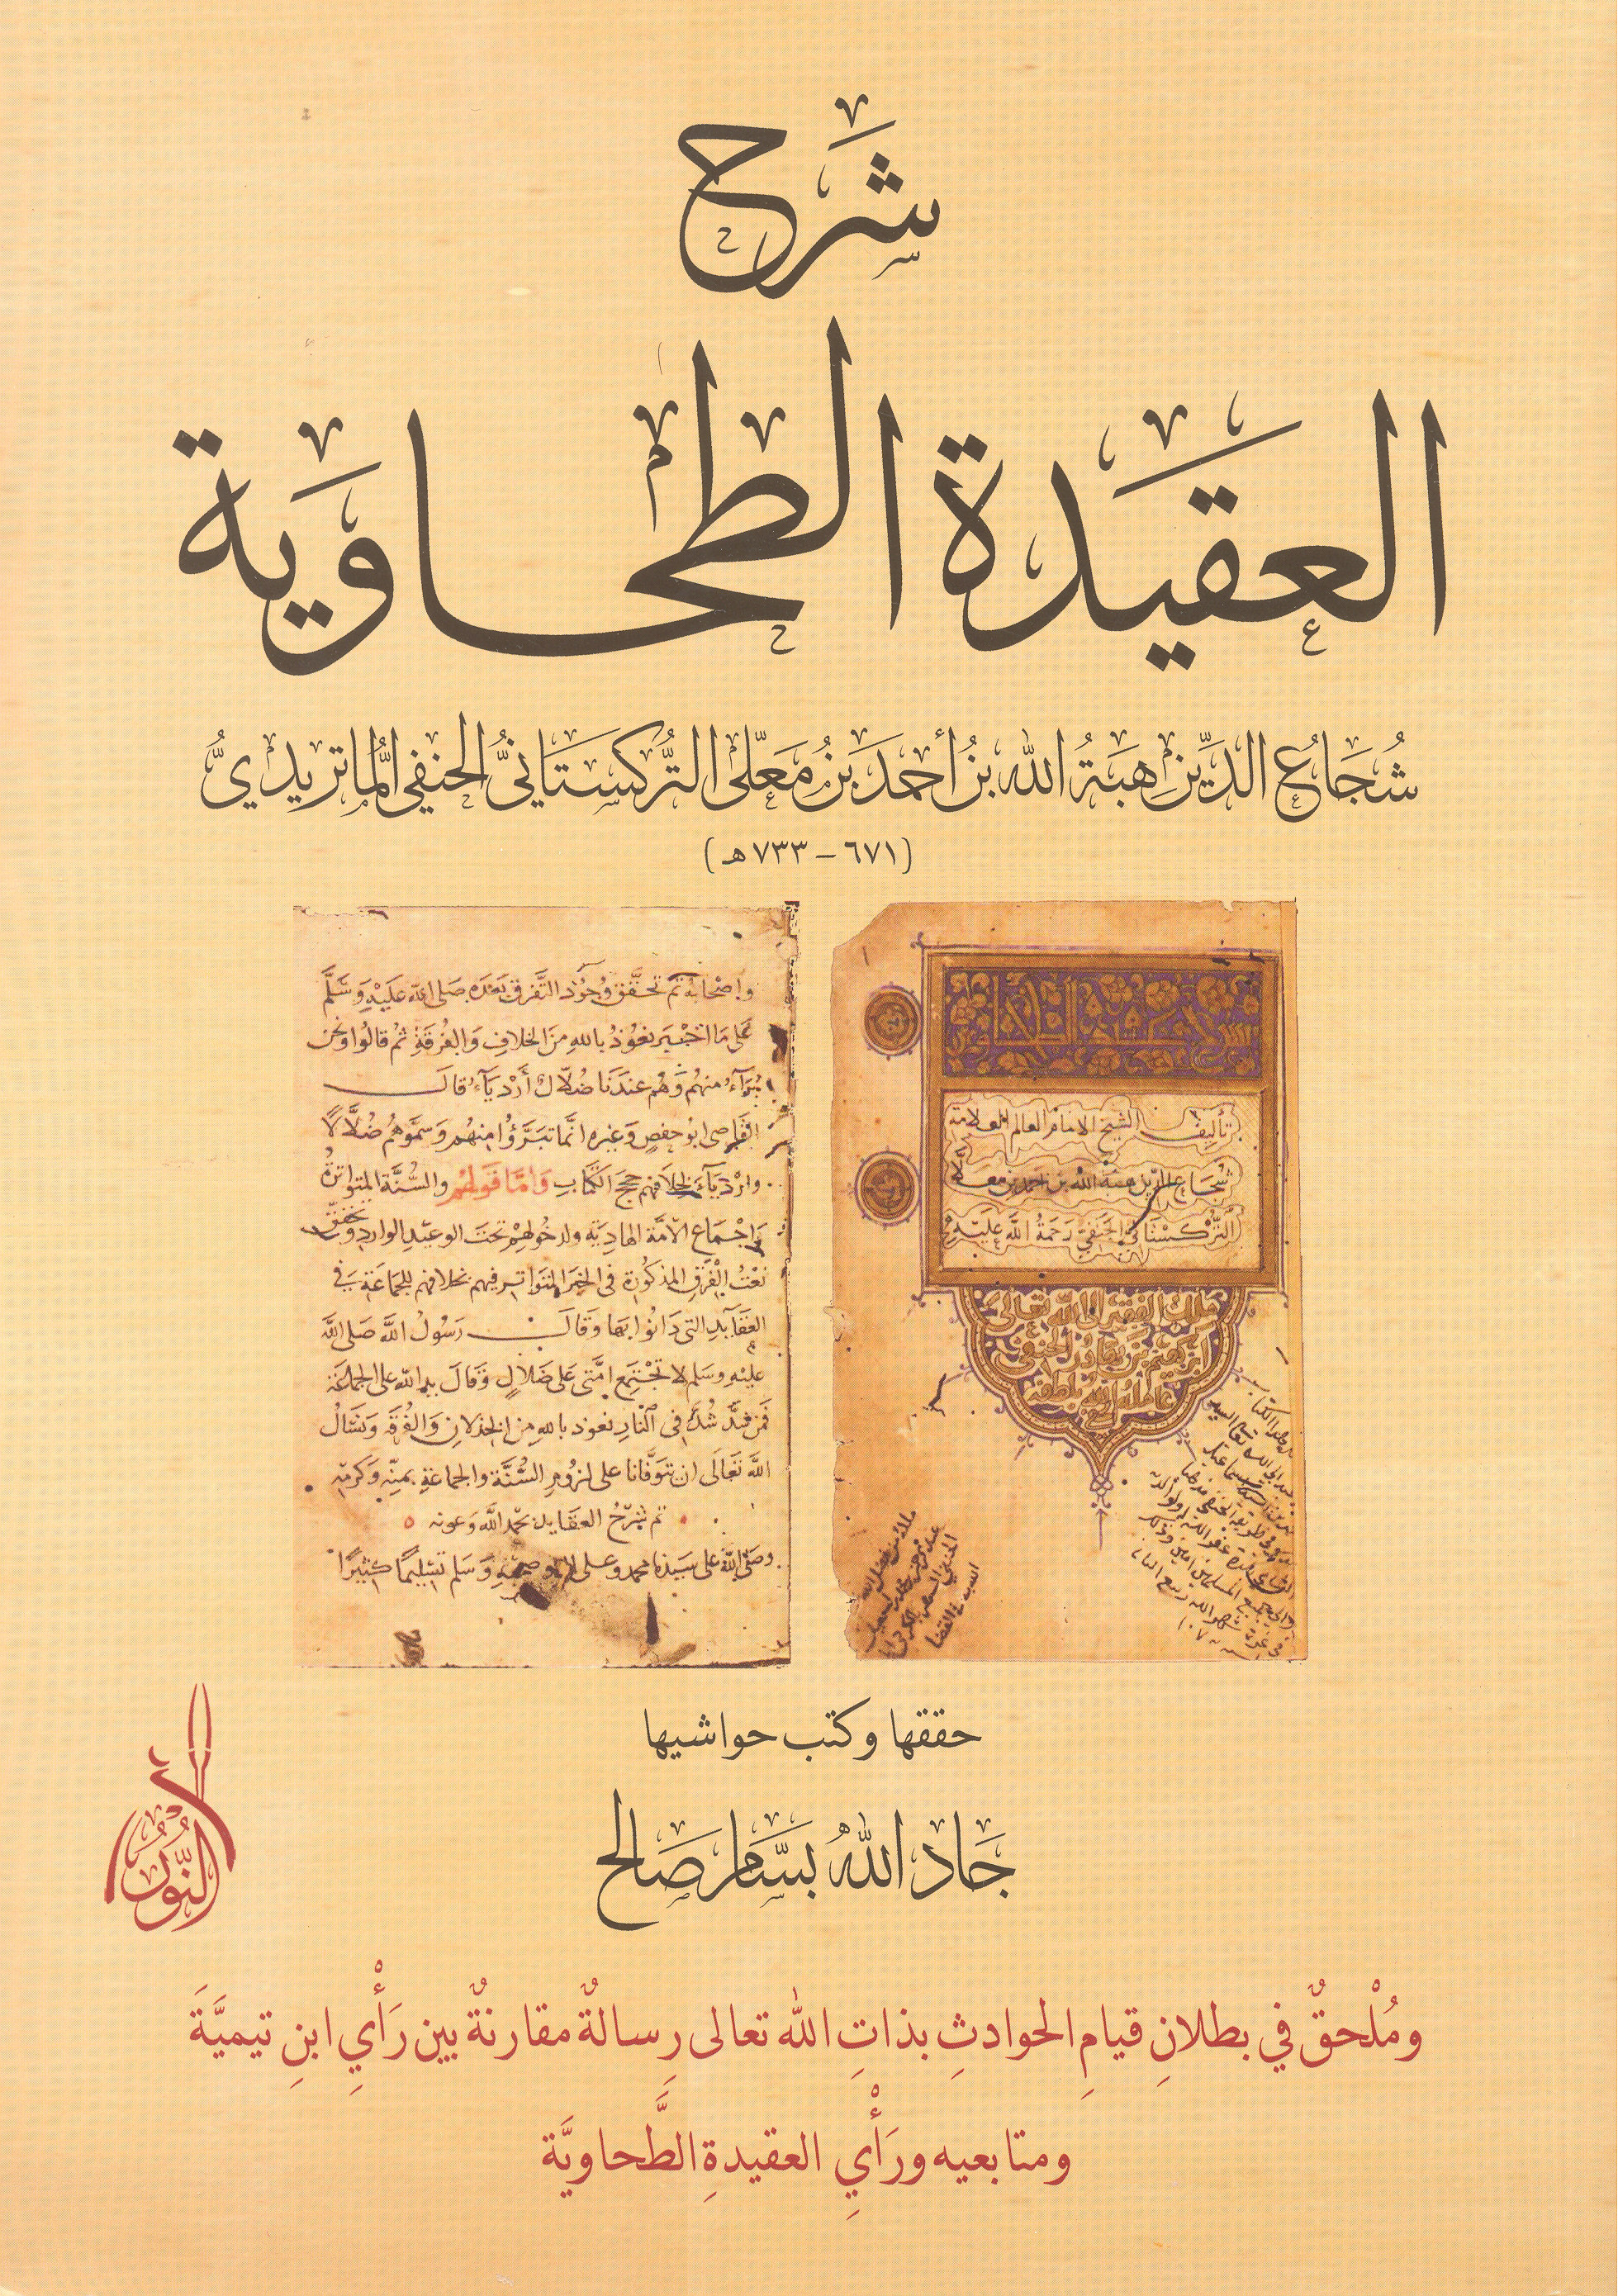 شَرَح
العقيَدة الطحاويَة
شُجَاعُ الدِّينِ هِبَةُ الله بنُ أحمدَ بنُ مَعَلّى التُّركستَانيُّ الحنفي المُاتريديُّ
(٦٧١ – ٧٣٣ هـ)
تأليف الشيخ الامام العالم العلامة
شجاع الدين هبة الله بن احمد بن معلا
التركستاني الحنفي رحمة الله عليه
ملك الفقير الى الله تعالى
عامله الله بلطفه
واصحابه ثم تحقق وجود التفرق بعده صلى الله عليه وسلم
على ما اخبر نعوذ بالله من الخلاف والفرقة ثم قالوا ونحن
برآء منهم وهم عندنا ضلال أردياء قال
القاضي ابو حفص وغيره انما تبرؤا منهم وسموهم ضلالا
وارديآء لخلافهم حجج الكتاب والسنة المتواترة
واجماع الامة الهادية ولدخولهم تحت الوعيد الوارد
نعت الفرق المذكورة في الخبر المتواتر فيهم بخلافهم للجماعة في
العقآيد التي دانوا بها وقال رسول الله صلى الله
عليه وسلم لا تجتمع امتي على ضلال وقال يد الله على الجماعة
فمن شذ شذ في النار نعوذ بالله من الخذلان والفرقة ونسال
الله تعالى ان يتوفانا على لزوم السنة والجماعة بمنه وكرمه
تم شرح العقايد بحمد الله وعونه
وصلى الله على سيدنا محمد وعلى اله وصحبه وسلم تسليما كثيرا
حققها وكتب حواشيها
جَاد اللهُ بسَّام صَالح
النُّورُ
ومُلْحقٌ في بطلانِ قيامِ الحوادثِ بذاتِ الله تعالى رِسالةٌ مقارنةٌ بين رَأْيِ ابنِ تيميَّةَ
ومتابعيه ورَأْيِ العقيدةِ الطَّحاويَّة